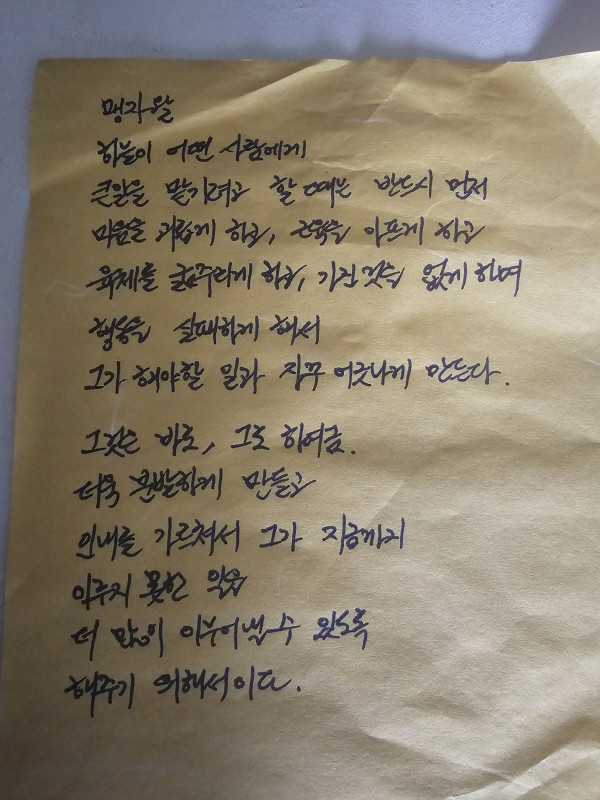 맹자왈
하늘이 어떤 사람에게
큰일을 맡기려고 할 때는 반드시 먼저
마음을 괴롭게 하고, 근육을 아프게 하고
육체를 굶주리게 하고, 가진것을 없게 하며
행동을 실패하게 해서
그가 해야할 일과 자꾸 어긋나게 만든다.
그것은 바로, 그로 하여금.
더욱 분발하게 만들고
인내를 가르쳐서 그가 지금까지
이루지 못한 일을
더 많이 이루어낼 수 있도록
해주기 위해서이다.